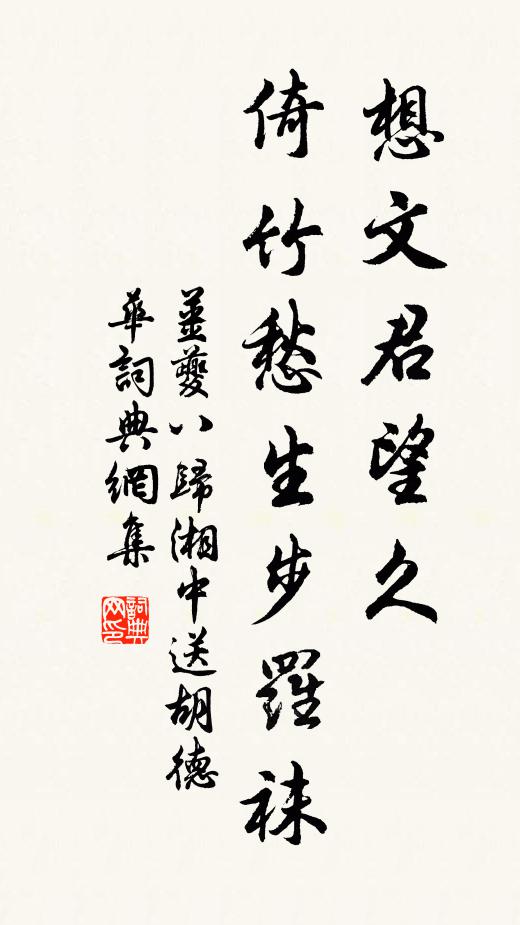 想文君望久
倚竹愁生步羅袜
薑夔八歸湘中送胡德
華詞典網集
詞典
网印